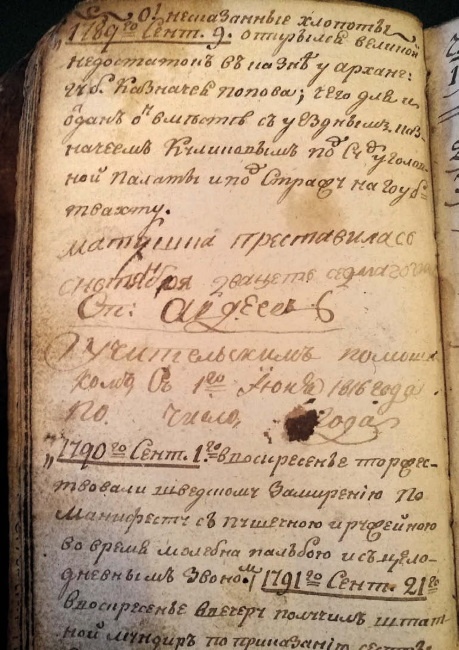 О! несказанные хлопоты
"1789го Сент. 9. открылся великой
недостаток въ казнѣ у арханг:
губ. казначея попова; чего для и
ѻданъ онъ вмѣстѣ съ уѣзднымъ каз-
начеемъ Куликовымъ подъ Судъ уголов-
ной Палаты и подъ Стражу на гоуб-
твахту.
матушка преставилась
сентебря дватцеть седмаго
От:
Учительскимъ помощни
комъ Съ 1го Июня 1816 года
По число, года
"1790го Сент. 1го в воскресенье торжес-
твовали шведскому Замирению По
Манифесту съ пушечною и ружейною
во время молебна пальбою и съ цело-
дневнымъ Звоном. 1791го Сент. 21го
в воскресенье ввечеру получилъ штат
ной мундиръ по приказанію